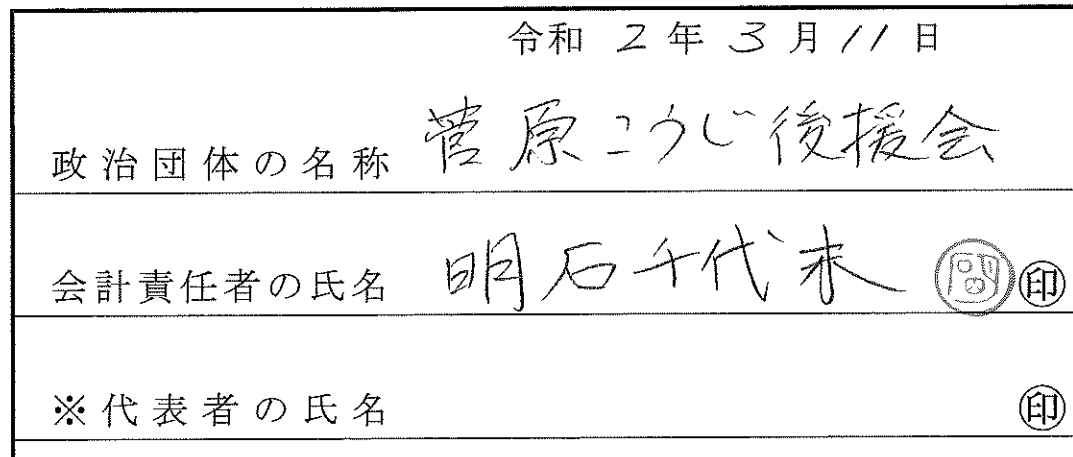 令和 2 年 3 月 11 日
政治団体の名称 菅原こうじ後援会
会計責任者の氏名 明石千代未 ㊞
※代表者の氏名 ㊞